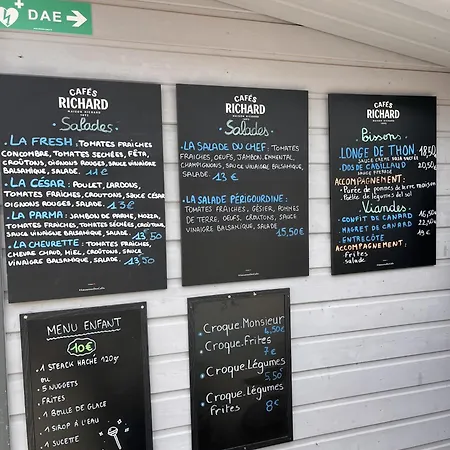 DAE
CAFÉS
RICHARD
Salades
. LA FRESH : TOMATES FRAICHES
CONCOMBRE, TOMATES SECHÉES, FÊTA,
CROÛTONS, OIGNONS ROUGES, SAUCE VINAIGRE
BALSAMIQUE, SALADE. 11 €
. LA CÉSAR : POULET, LARDONS,
TOMATES FRAICHES, CROUTONS, SAUCE CÉSAR
OIGNONS ROUGES, SALADE 13 €
. LA PARMA : JAMBON DE PARME, MOZZA,
TOMATES FRAICHES, TOMATES SÉCHÉES, CROÛTONS,
VINAIGRE BALSAMIQUE, SALADE. 13,50
. LA CHEVRETTE : TOMATES FRAICHES,
CHEVRE CHAUD, MIEL, CROÛTONS, SAUCE
VINAIGRE BALSAMIQUE, SALADE. 13.50
CAFÉS
RICHARD
Salades
. LA SALADE DU CHEF : TOMATES
FRAICHES, OEUFS, JAMBON, EMMENTAL,
CHAMPIGNONS, SAUCE VINAIGRE BALSAMIQUE,
SALADE. 13 €
. LA SALADE PÉRIGOURDINE :
TOMATES FRAICHES, GÉSIER, POMMES
DE TERRE, OEUFS, CROÛTONS, SAUCE
VINAIGRE BALSAMIQUE, SALADE
15,50€
CAFÉS
RICHARD
Poissons
LONGE DE THON 18,50
SAUCE
. DOS DE CABILLAUD 20,50€
SAUCE
ACCOMPAGNEMENT :
. Purée de pommes de terre maison
. Poêlée de légumes du sol
Viandes
. CONFIT DE CANARD 16,50€
. MAGRET DE CANARD 22,50€
. ENTRECÔTE 19 €
ACCOMPAGNEMENT :
frites
salade
MENU ENFANT
10€
. 1 STEACK HACHÉ 120gr
ou
. 5 NUGGETS
. FRITES
. 1 BOULE DE GLACE
. 1 SIROP À L'EAU
. 1 SUCETTE
. Croque.Monsieur
6,50€
. Croque.Frites
7 €
. Croque.Légumes
5,50
. Croque.Légumes
frites 8€